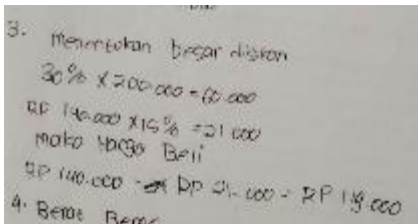 3. Menentukan besar diskon
30% x 200.000 = 60.000
RP 140.000 x 15% = 21.000
maka Harga Beli
RP 140.000 - RP 21.000 = RP 119.000
4. Berat